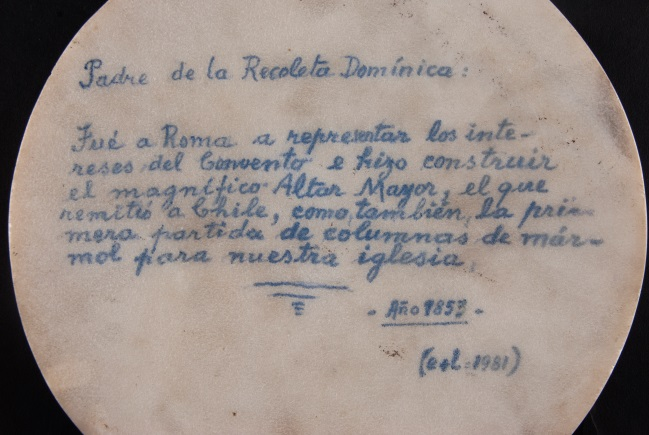 Padre de la Recoleta Domínica:
Fué a Roma a representar los inte-
reses del Convento e hizo construir
el magnífico Altar Mayor, el que
remitió a Chile, como también, la pri-
mera partida de columnas de már-
mol para nuestra iglesia.
- Año 1853 -
1981)